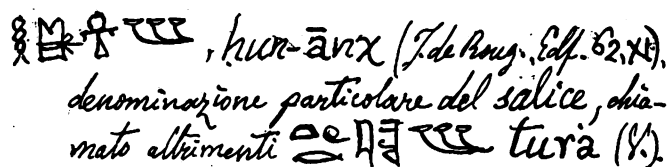 𓎛𓉗𓋹𓆱, hun-ānχ (J. de Roug., Edf. 62, XI),
denominazione particolare del salice, chia-
mato altrimenti turà (V.)